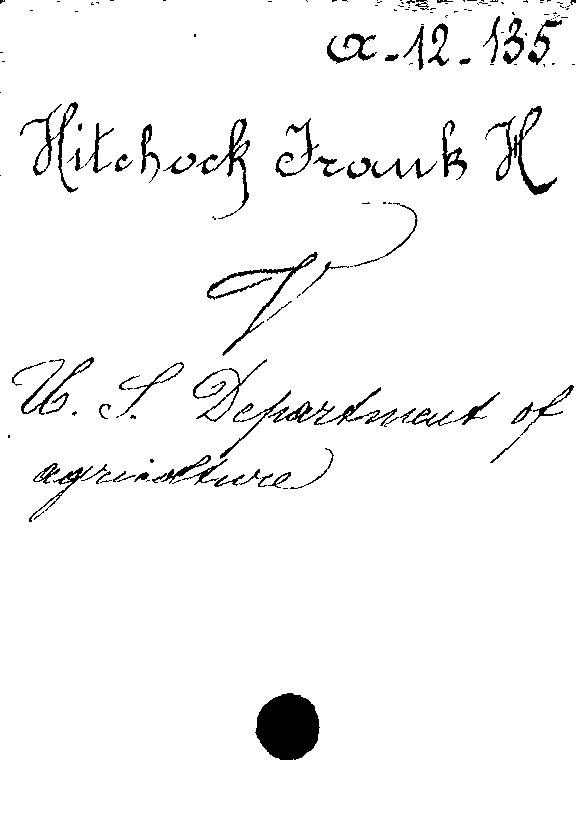 a-12-135
Hitchock Frank H
V
U. S. Department of
agriculture